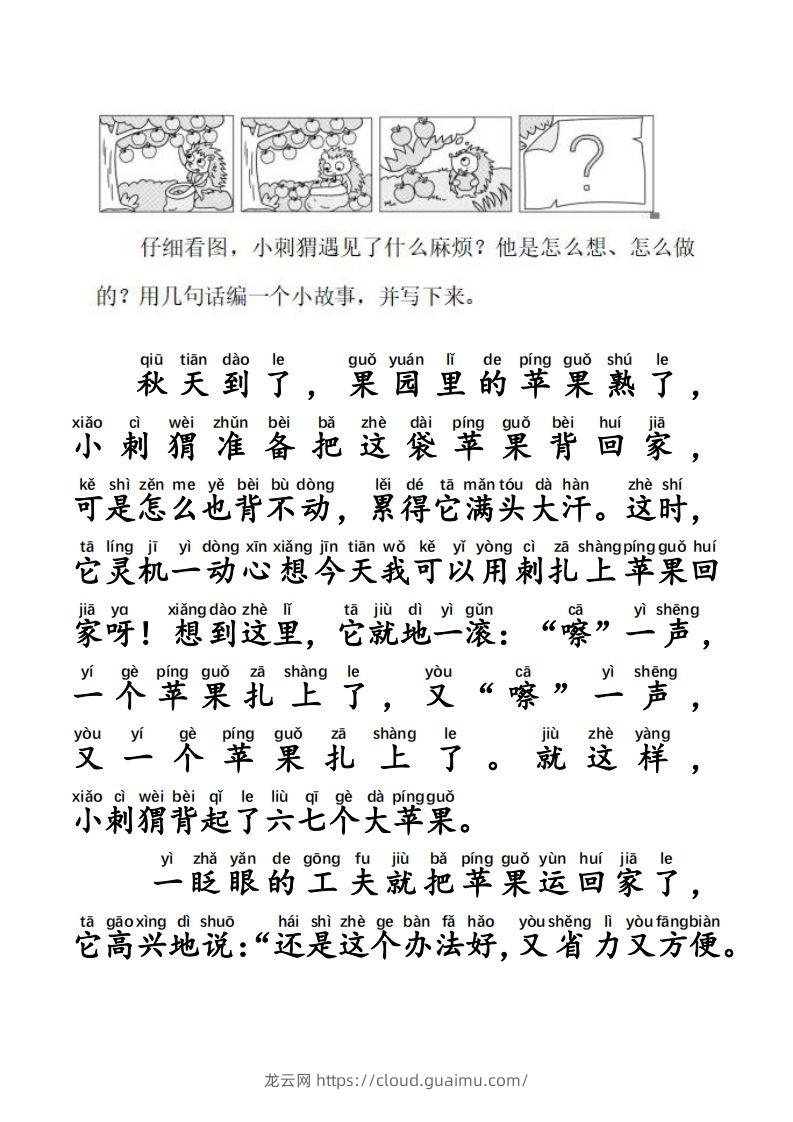 ?
仔细看图，小刺猬遇见了什么麻烦？他是怎么想、怎么做
的？用几句话编一个小故事，并写下来。
qiū tiān dào le guǒ yuán lǐ de píng guǒ shú le
秋天到了，果园里的苹果熟了，
xiǎo cì wèi zhǔn bèi bǎ zhè dài píng guǒ bèi huí jiā
小刺猬准备把这袋苹果背回家，
kě shì zěn me yě bèi bù dòng lěi dé tā mǎn tóu dà hàn zhè shí
可是怎么也背不动，累得它满头大汗。这时，
tā líng jī yì dòng xīn xiǎng jīn tiān wǒ kě yǐ yòng cì zā shàng píng guǒ huí
它灵机一动心想今天我可以用刺扎上苹果回
jiā ya xiǎng dào zhè lǐ tā jiù dì yì gǔn cā yì shēng
家呀！想到这里，它就地一滚：“嚓”一声，
yí gè píng guǒ zā shàng le yòu cā yì shēng
一个苹果扎上了，又“嚓”一声，
yòu yí gè píng guǒ zā shàng le jiù zhè yàng
又一个苹果扎上了。就这样，
xiǎo cì wèi bèi qǐ le liù qī gè dà píng guǒ
小刺猬背起了六七个大苹果。
yì zhǎ yǎn de gōng fu jiù bǎ píng guǒ yùn huí jiā le
一眨眼的工夫就把苹果运回家了，
tā gāo xìng dì shuō hái shì zhè ge bàn fǎ hǎo yòu shěng lì yòu fāng biàn
它高兴地说：“还是这个办法好，又省力又方便。
龙云网 https://cloud.guaimu.com/